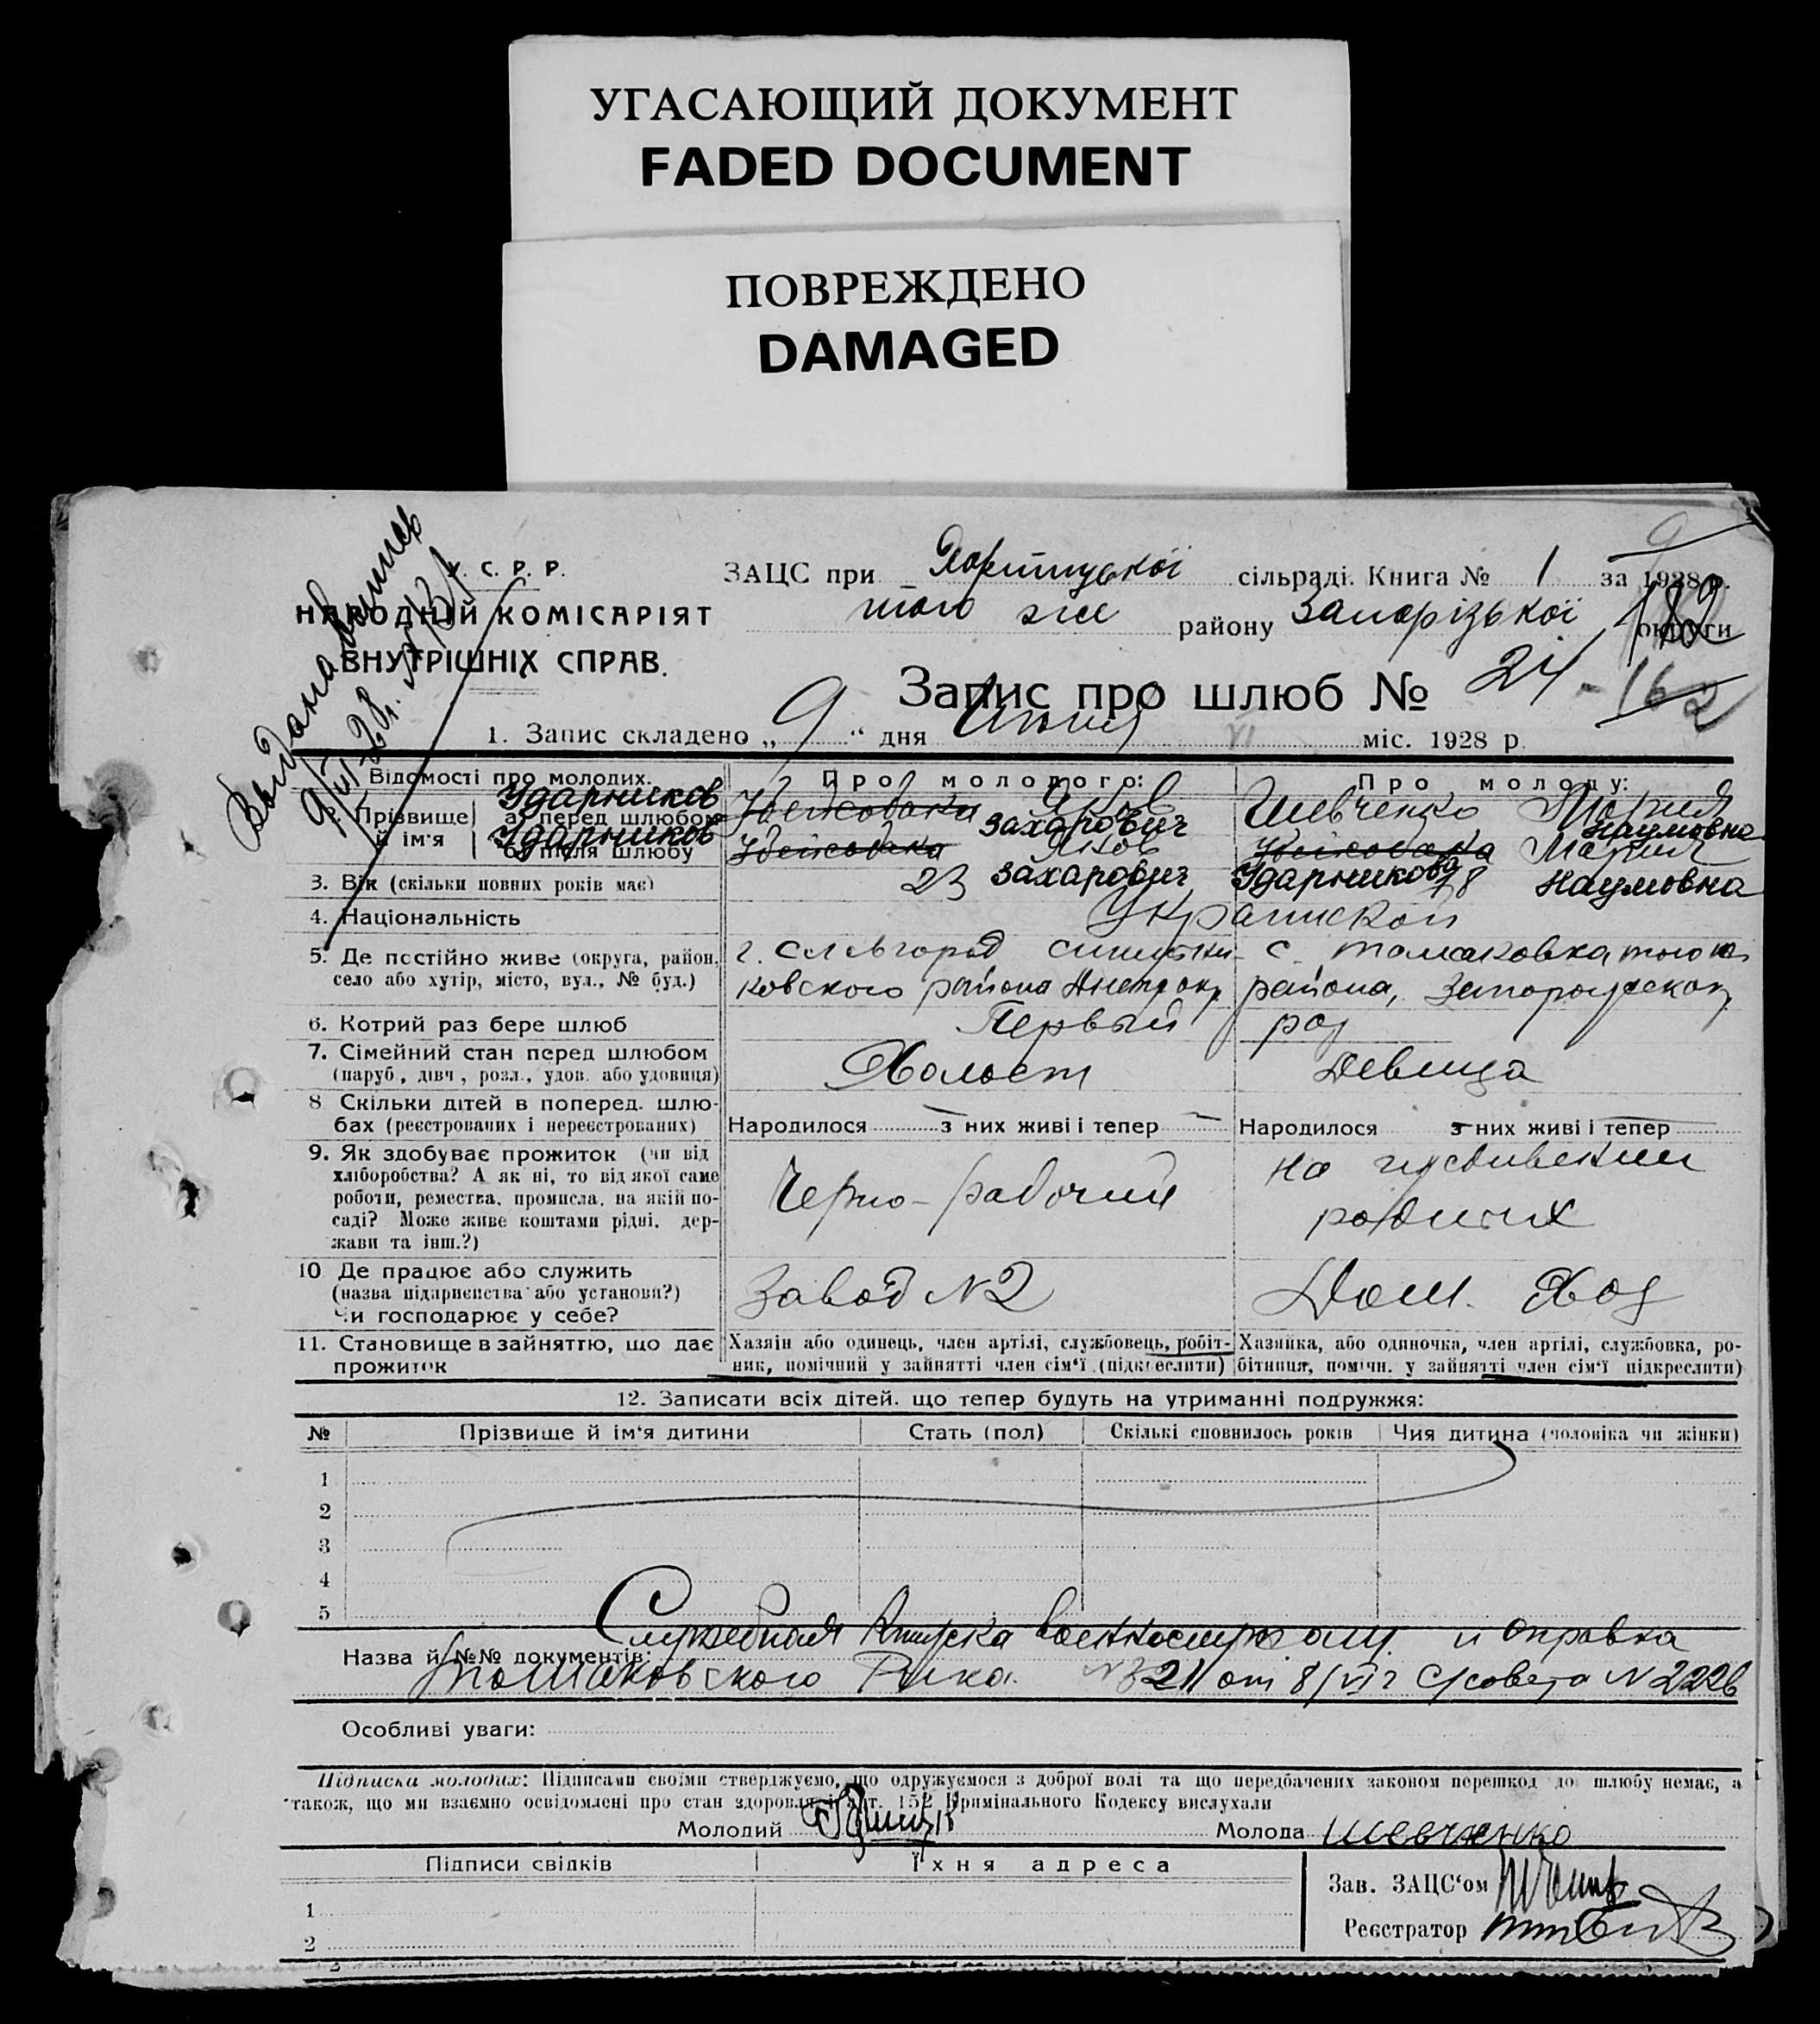 УГАСАЮЩИЙ ДОКУМЕНТ
FADED DOCUMENT
ПОВРЕЖДЕНО
DAMAGED
У. С. Р. Р.
НАРОДНІЙ КОМІСАРІЯТ
ВНУТРІШНІХ СПРАВ.
9/VI-28г. № 131
ЗАЦС при Хортицької сільраді. Книга № 1 за 1928 р.
того же району Запорізької округи
182
Запис про шлюб № 24 - 162
1. Запис складено „ 9 “ дня Июня VI міс. 1928 р.
Відомості про молодих. Про молодого: Про молоду:
Прізвище й ім'я
а) перед шлюбом Ударников Яков Захарович Шевченко Мария Наумовна
б) після шлюбу Ударников Яков Захарович Ударникова Мария Наумовна
3. Вік (скільки повних років має) 23 18
4. Національність Украинской
5. Де постійно живе (округа, район, село або хутір, місто, вул., № буд.)
г. Славгород района Днепр окр
с. Томаковка того ж района, Запорожской
6. Котрий раз бере шлюб Первый раз
7. Сімейний стан перед шлюбом
(паруб., дівч., розл., удов. або удовиця) Холост Девица
8 Скільки дітей в поперед. шлюбах (реєстрованих і нереєстрованих)
Народилося — з них живі і тепер — Народилося з них живі і тепер —
9. Як здобуває прожиток (чи від хліборобства? А як ні, то від якої саме роботи, ремества, промисла, на якій посаді? Може живе коштами рідні, держави та інш.?)
Черно-рабочий
на иждивении
родных
10 Де працює або служить
(назва підприємства або установи?)
Чи господарює у себе?
Завод №2 Дом. Хоз
11. Становище в зайняттю, що дає прожиток
Хазяін або одинець, член артілі, службовець, робітник, помічний у зайнятті член сім'ї (підкреслити)
Хазяйка, або одиночка, член артілі, службовка, робітниця, помічн. у зайнятті член сім'ї підкреслити)
12. Записати всіх дітей. що тепер будуть на утриманні подружжя:
№ Прізвише й ім'я дитини Стать (пол) Скількі сповнилось років Чия дитина (чоловіка чи жінки)
1
2
3
4
5
Служебная и справка
Назва й №№ документів: Томаковского Рика. №3211 от 8/VI г С/совета №2226
Особливі уваги:
Підписка молодих: Підписами своїми стверджуємо, що одружуємося з доброї волі та що передбачених законом перешкод до шлюбу немає, а
також, що ми взаємно освідомлені про стан здоровля і арт. 152 Кримінального Кодексу вислухали
Молодий Молода Шевченко
Підписи свідків Їхня адреса
Зав. ЗАЦС'ом
1
Реєстратор
2